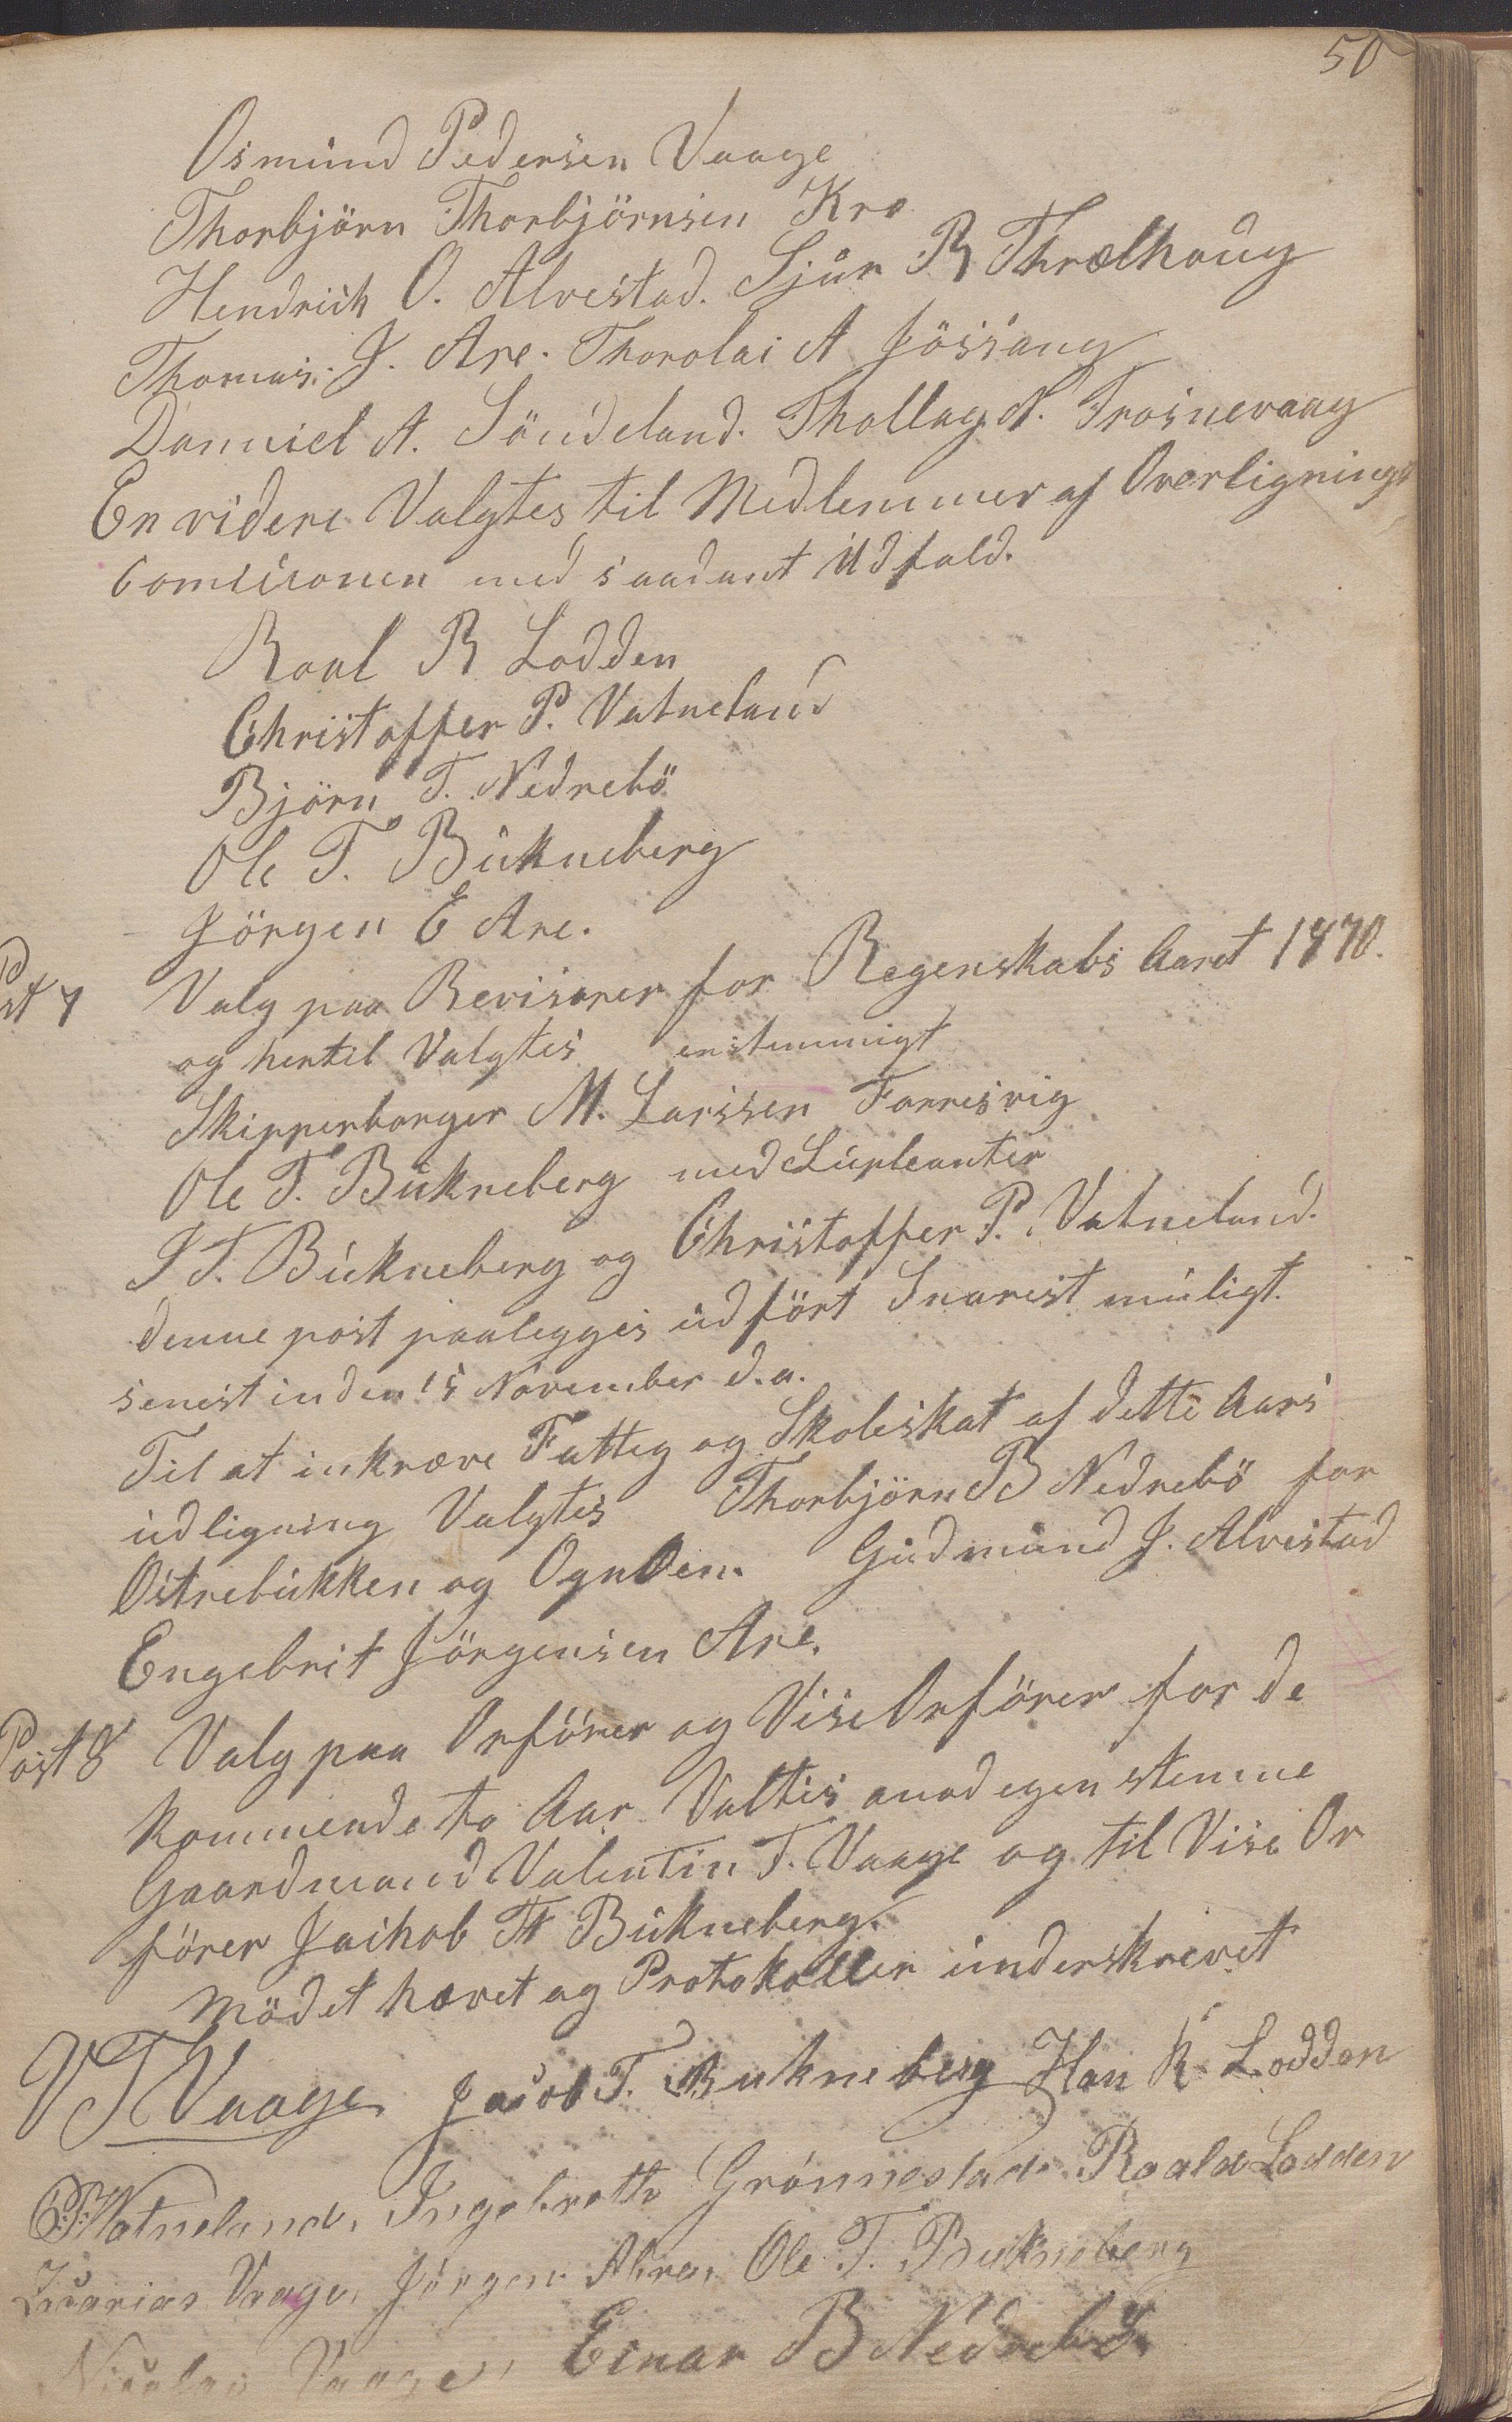 50
Osmund Pedersen Vaage
Thorbjörn Thorbjörnsen Kro
Hendrich O. Alvestad. Sjur R Thrælhaug
Thomas. J. Are. Thorolai A Jössang
Danniel A. Söndeland. Thollag N. Trosnevaag
En videre Valgtes til Medlemmer af Overlignings
Comisionen med saadant Udfald.
Roal R Lodden
Christoffer P. Vatneland
Björn T. Nedrebö
Ole T. Bukneberg
Jörgen E Are.
Post 7 Valg paa Revisorer for Regenskabs Aaret 1870.
og hertil Valgtes enstemmigt
Skipperborger M. Larssen Farresvig
Ole T. Bukneberg med Supleanter
J T. Bukneberg og Christoffer P. Vatneland.
denne post paalegges udfört Snarest muligt.
senest inden 15 November d.a.
Til at inkræve Fattig og Skoleskat af dette Aars
udligning Valgtes Thorbjörn B Nedrebö for
Östrebukken og Ognden. Gudmund J. Alvestad
Engebrit Jörgensen Are.
Post 8 Valg paa Orförer og Vise Orförer for de
kommende to Aar Valtes anod egen stemme
Gaardmand Valentin T. Vaage og til Vise Or
förer Jaikob T Bukneberg.
Mödet hævet og Protokollen underskrevet
VTVaage Jacob T. Bukneberg Han R Lodden
C.P. Watneland, Ingebretto Grönnestad. Roald Lodden
Zacarias Vaage, Jörgen Ahre, Ole T. Bukneberg
Nicolai Vaage, Einar B Nedrebö